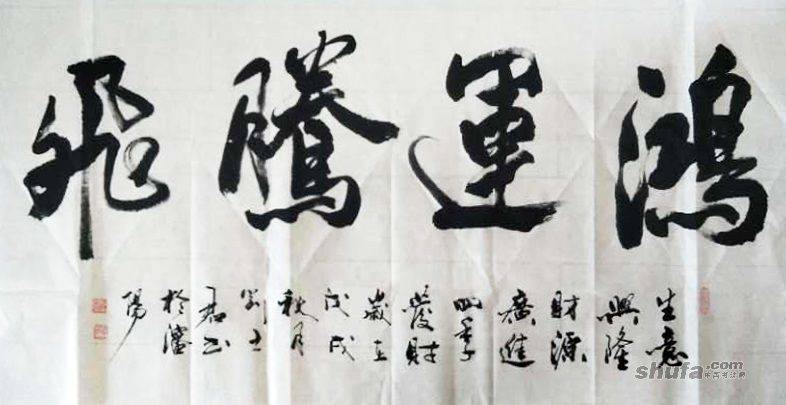 鴻運騰飛
生意
興隆
財源
廣進
四季
發財
歲在
戊戌
秋月
劉士
君書
於瀋
陽
shufa.com